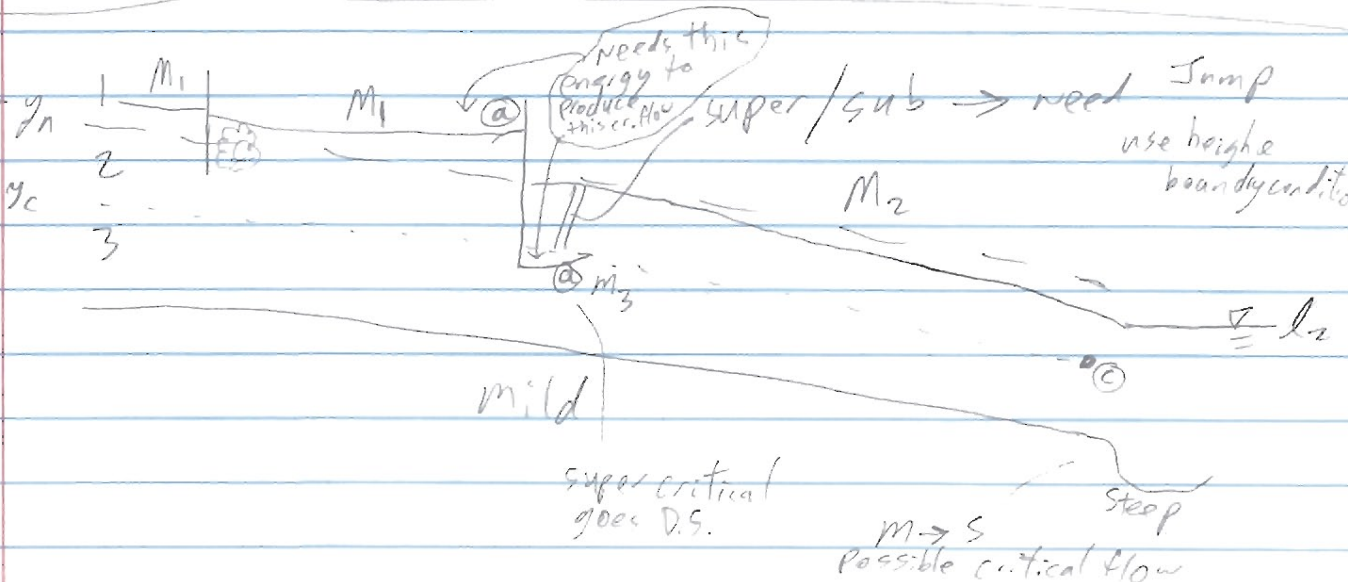 M1
M1
yn
1
2
yc
3
a
Needs this
energy to
produce
this cr. flow
super/sub → need Jump
use heighe
boundry conditio
M2
a
m3
l2
c
Mild
super critical
goes D.S.
Steep
M → S
possible critical flow